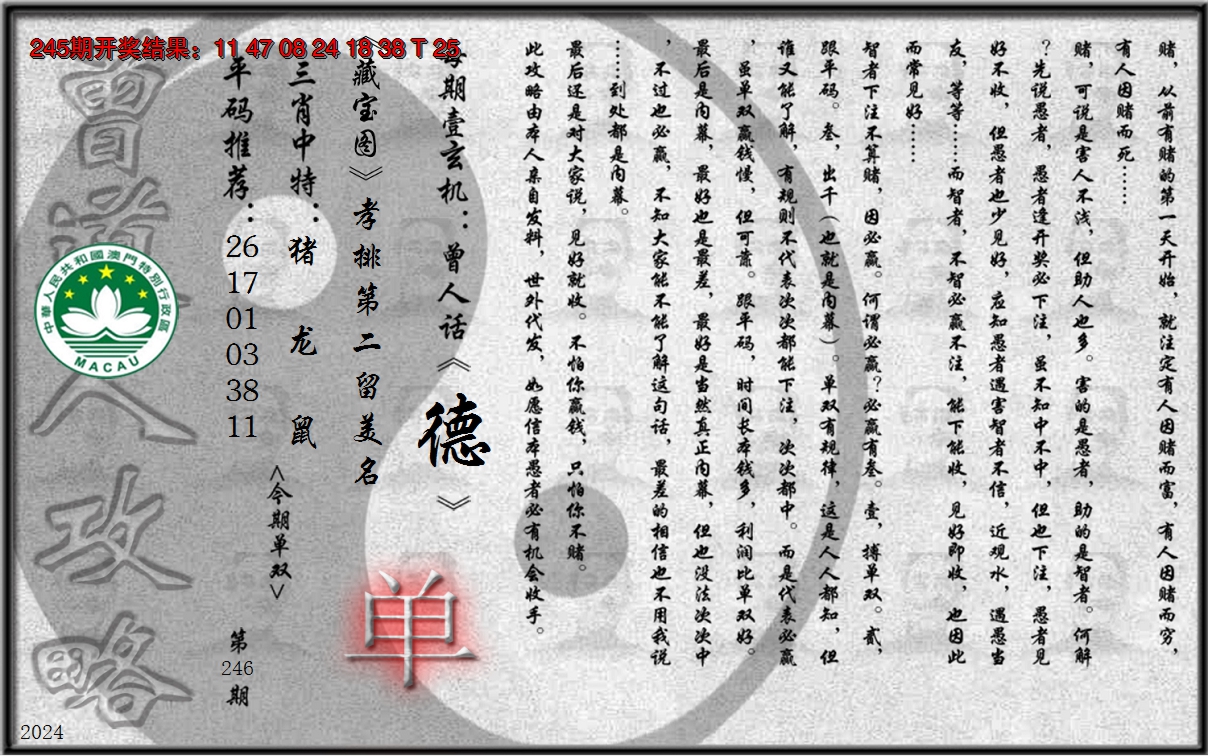 245期开奖结果：11 47 08 24 18 38 T 25
赌，从前有赌的第一天开始，就注定有人因赌而富，有人因赌而穷，
有人因赌而死……
赌，可说是害人不浅，但助人也多。害的是愚者，助的是智者。何解
？先说愚者，愚者逢开奖必下注，虽不知中不中，但也下注，愚者见
好不收，但愚者也少见好，应知愚者遇害智者不信，近观水，遇愚当
友，等等……而智者，不智必赢不注，能下能收，见好即收，也因此
而常见好……
智者下注不算赌，因必赢。何谓必赢？必赢有叁。壹，搏单双。贰，
跟平码。叁，出千（也就是内幕）。单双有规律，这是人人都知，但
谁又能了解，有规则不代表次次都能下注，次次都中。而是代表必赢
，虽单双赢钱慢，但可靠。跟平码，时间长本钱多，利润比单双好。
最后是内幕，最好也是最差，最好是当然真正内幕，但也没法次次中
，不过也必赢，不知大家能不能了解这句话，最差的相信也不用我说
……到处都是内幕。
最后还是对大家说，见好就收。不怕你赢钱，只怕你不赌。
此攻略由本人亲自发料，世外代发，如愿信本愚者必有机会收手。
每期壹玄机：曾人话《德》
《藏宝图》孝排第二留美名
单
三肖中特：猪 龙 鼠
<今期单双>
平码推荐：26 17 01 03 38 11
第246期
曾道人攻略
中華人民共和國澳門特別行政區
MACAU
2024